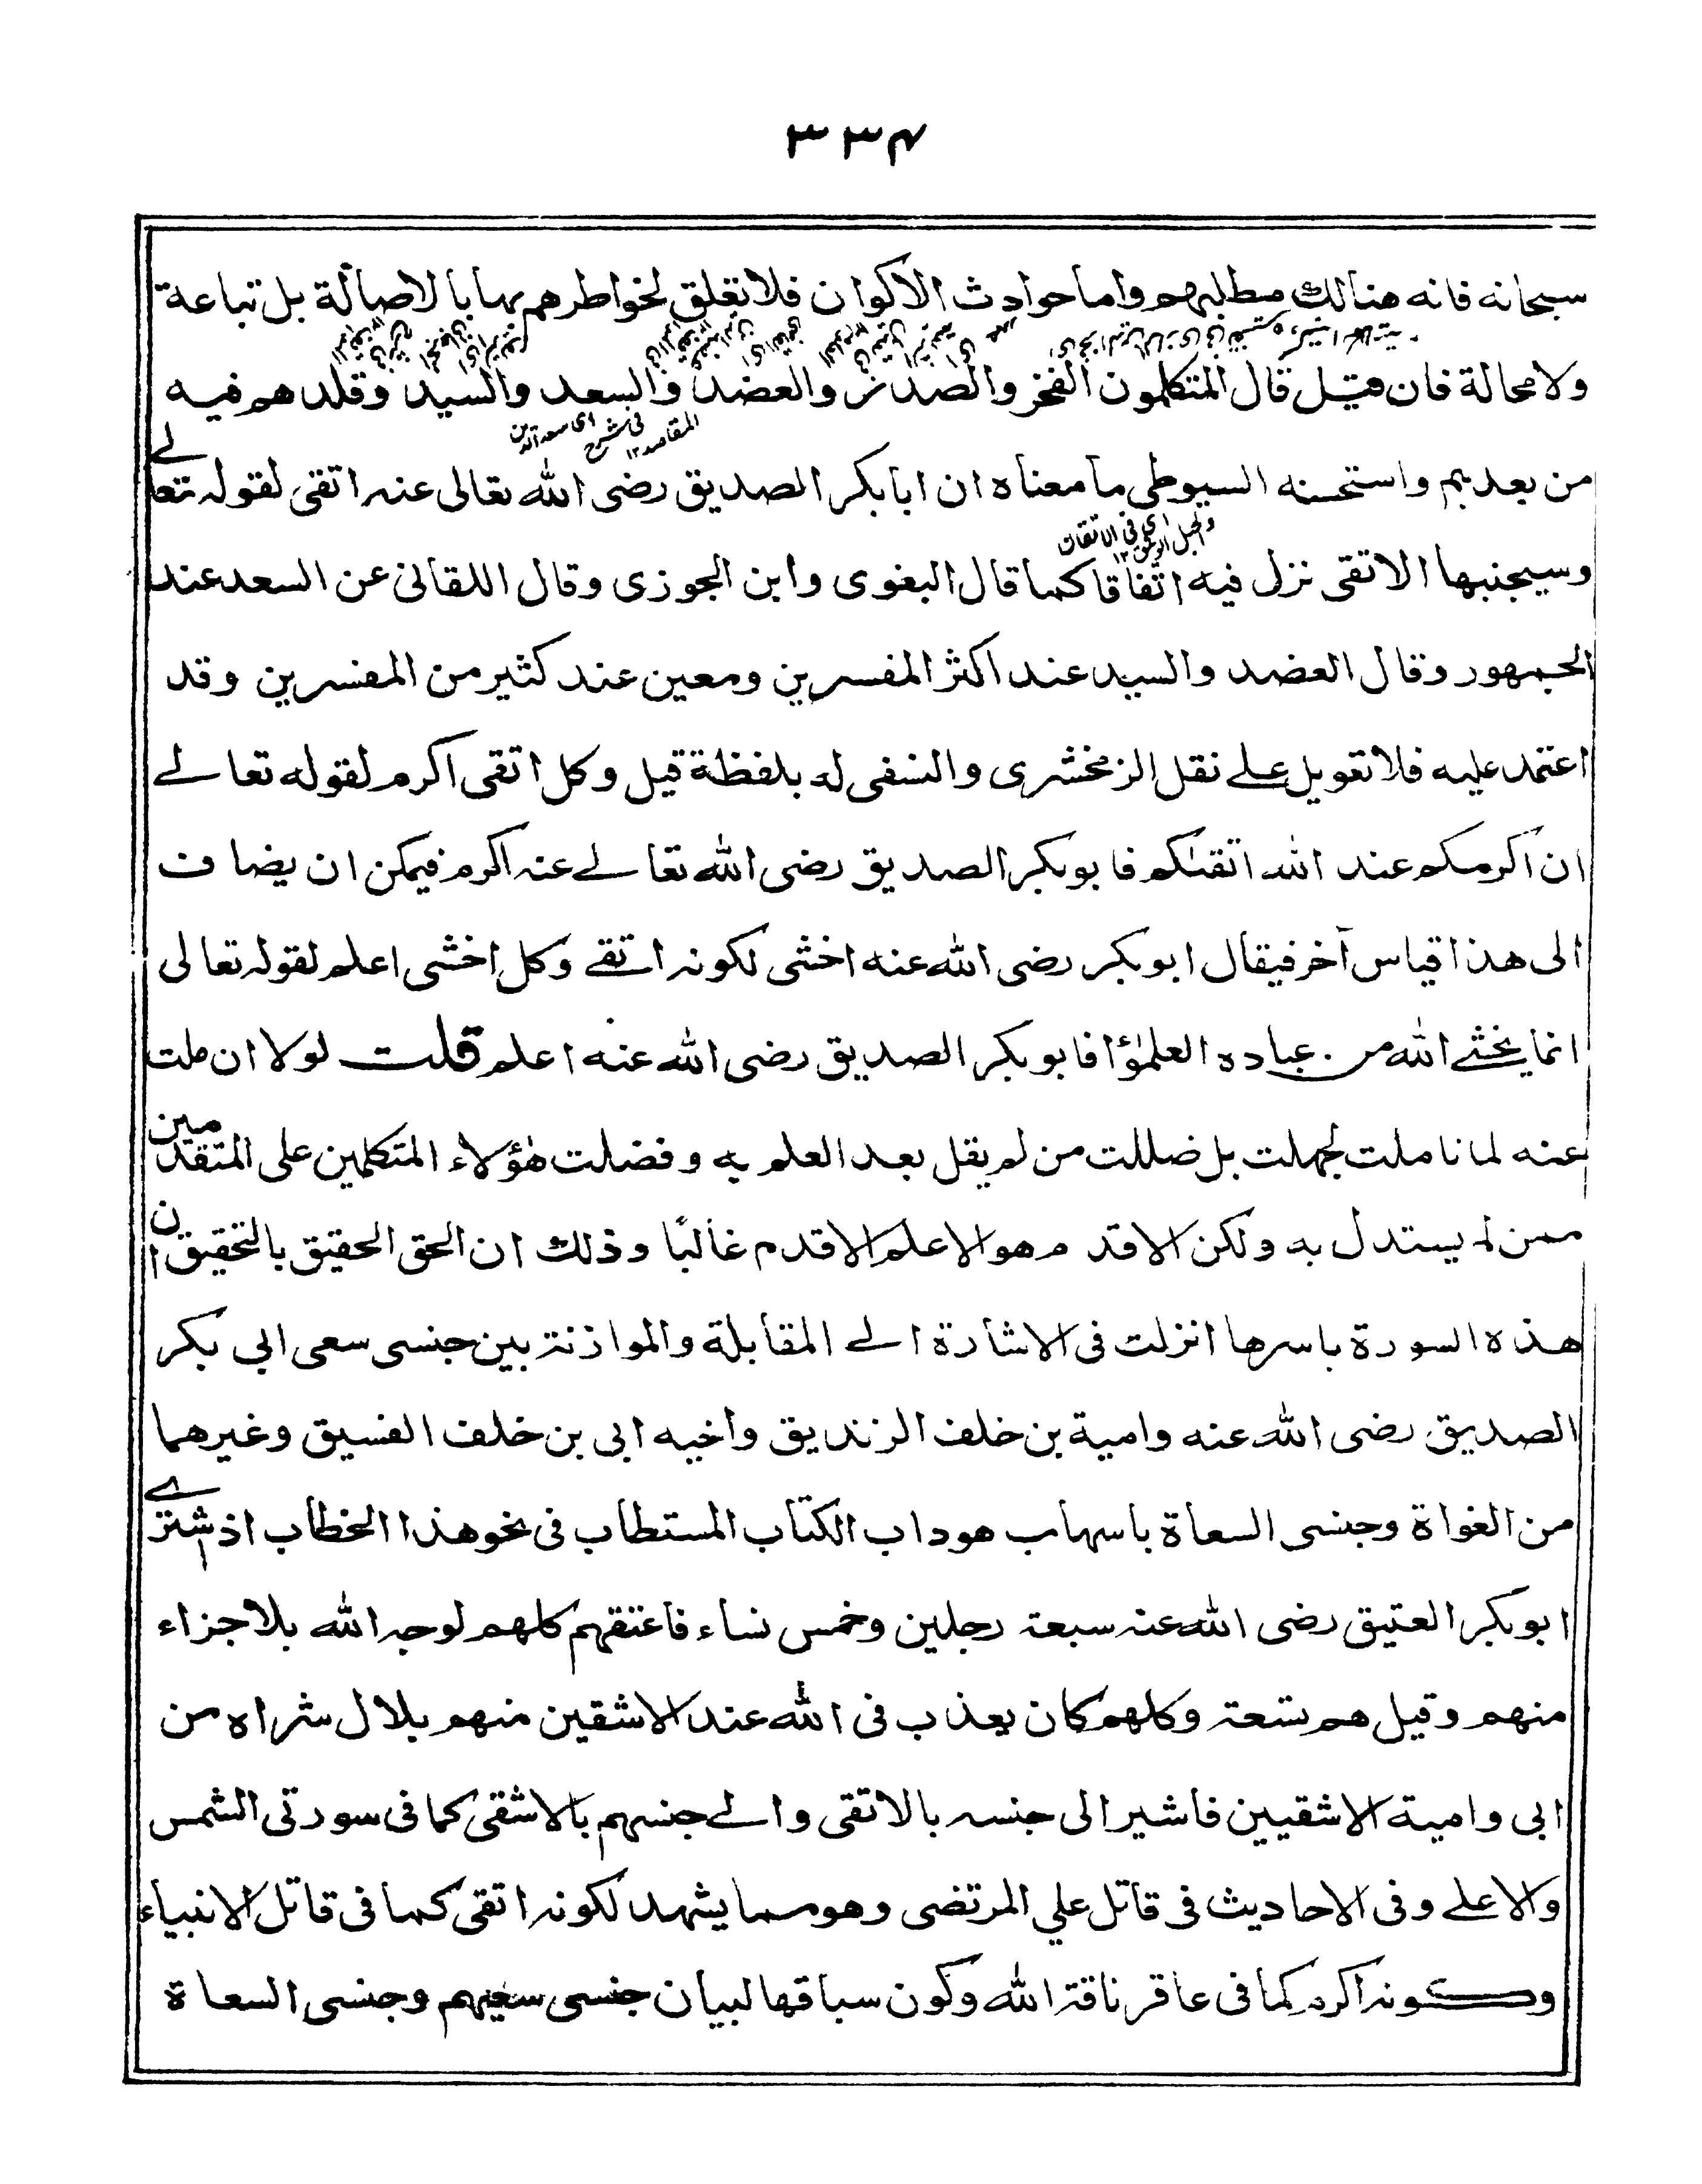 ٣٣٤
سبحانه فانه هنالك مطلبهم واما حوادث الاكوان فلا تعلق لخواطرهم بها بالاصالة بل تباعة
ولا محالة فان قيل قال المتكلمون الفخر والصدر والعضد والسعد والسيد وقلدهم فيه
اى سعد الدين فى شرح المقاصد ١٢
من بعدهم واستحسنه السيوطى ما معناه ان ابا بكر الصديق رضى الله تعالى عنه اتقى لقوله تعالے
اى فى الاتقان والحبل الوثيق ١٢
وسيجنبها الاتقى نزل فيه اتفاقا كما قال البغوى وابن الجوزى وقال اللقانى عن السعد عند
الجمهور وقال العضد والسيد عند اكثر المفسرين ومعين عند كثير من المفسرين وقد
اعتمد عليه فلا تعويل علے نقل الزمخشرى والنسفى له بلفظة قيل وكل اتقى اكرم لقوله تعالے
ان اكرمكم عند الله اتقىكم فابوبكر الصديق رضى الله تعالے عنه اكرم فيمكن ان يضاف
الى هذا قياس آخر فيقال ابوبكر رضى الله عنه اخشى لكونه اتقے وكل اخشى اعلم لقوله تعالى
انما يخشے الله من عباده العلمٰؤا فابوبكر الصديق رضى الله عنه اعلم قلت لولا ان ملت
عنه لما ناملت لجهلت بل ضللت من لم يقل بعد العلم به وفضلت هؤلاء المتكلمين على المتقدمين
ممن لم يستدل به ولكن الاقدم هو الاعلم الاقدم غالبًا وذلك ان الحق الحقيق بالتحقيق ان
هذه السورة باسرها انزلت فى الاشارة الے المقابلة والموازنة بين جنسى سعى ابي بكر
الصديق رضى الله عنه وامية بن خلف الزنديق واخيه ابى بن خلف الفسيق وغيرهما
من الغواة وجنسى السعاة باسهاب هو داب الكتاب المستطاب فى نحو هذا الخطاب اذ اشترے
ابوبكر العتيق رضى الله عنه سبعة رجلين وخمس نساء فاعتقهم كلهم لوجه الله بلا جزاء
منهم وقيل هم تسعة وكلهم كان يعذب فى الله عند الاشقين منهم بلال شراه من
ابى وامية الاشقيين فاشير الى جنسه بالاتقى والے جنسهم بالاشقى كما فى سورتى الشمس
والاعلے وفى الاحاديث فى قاتل علي المرتضى وهو مما يشهد لكونه اتقى كما فى قاتل الانبياء
وكونه اكرم كما فى عاقر ناقة الله وكون سباقها لبيان جنسى سعيهم وجنسى السعاة